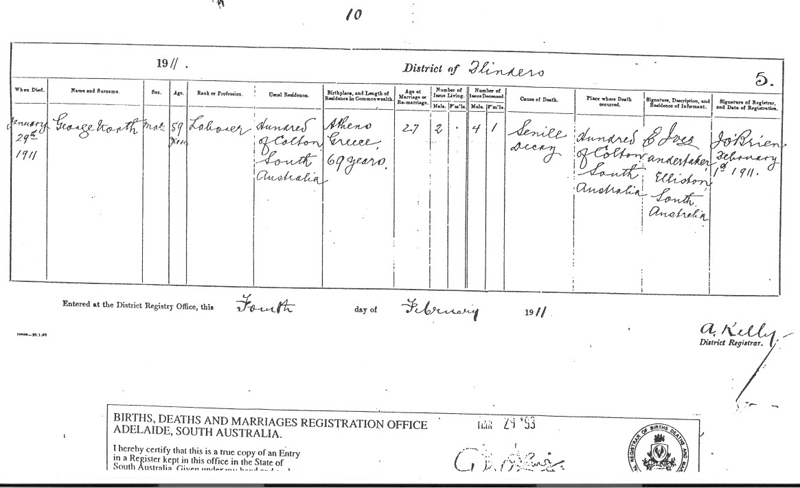 10
1911. District of Flinders 5.
When Died. Name and Surname. Sex. Age. Rank or Profession. Usual Residence. Birthplace, and Length of Residence in Commonwealth. Age at Marriage or Re-marriage. Number of Issue Living. Number of Issue Deceased. Cause of Death. Place where Death occurred. Signature, Description, and Residence of Informant. Signature of Registrar, and Date of Registration.
Male. F'm'le. Male. F'm'le.
January George North Male Labourer Hundred Athens 27 2 . 4 1 Senile Hundred E Ives J O'Brien
29th years of Colton Greece Decay of Colton undertaker February
1911 South 69 years. South Elliston 1st 1911.
Australia Australia South
Australia
Entered at the District Registry Office, this Fourth day of February 1911
A. Kelly
District Registrar.
BIRTHS, DEATHS AND MARRIAGES REGISTRATION OFFICE
ADELAIDE, SOUTH AUSTRALIA.
I hereby certify that this is a true copy of an Entry
in a Register kept in this office in the State of
South Australia. Given under my hand and